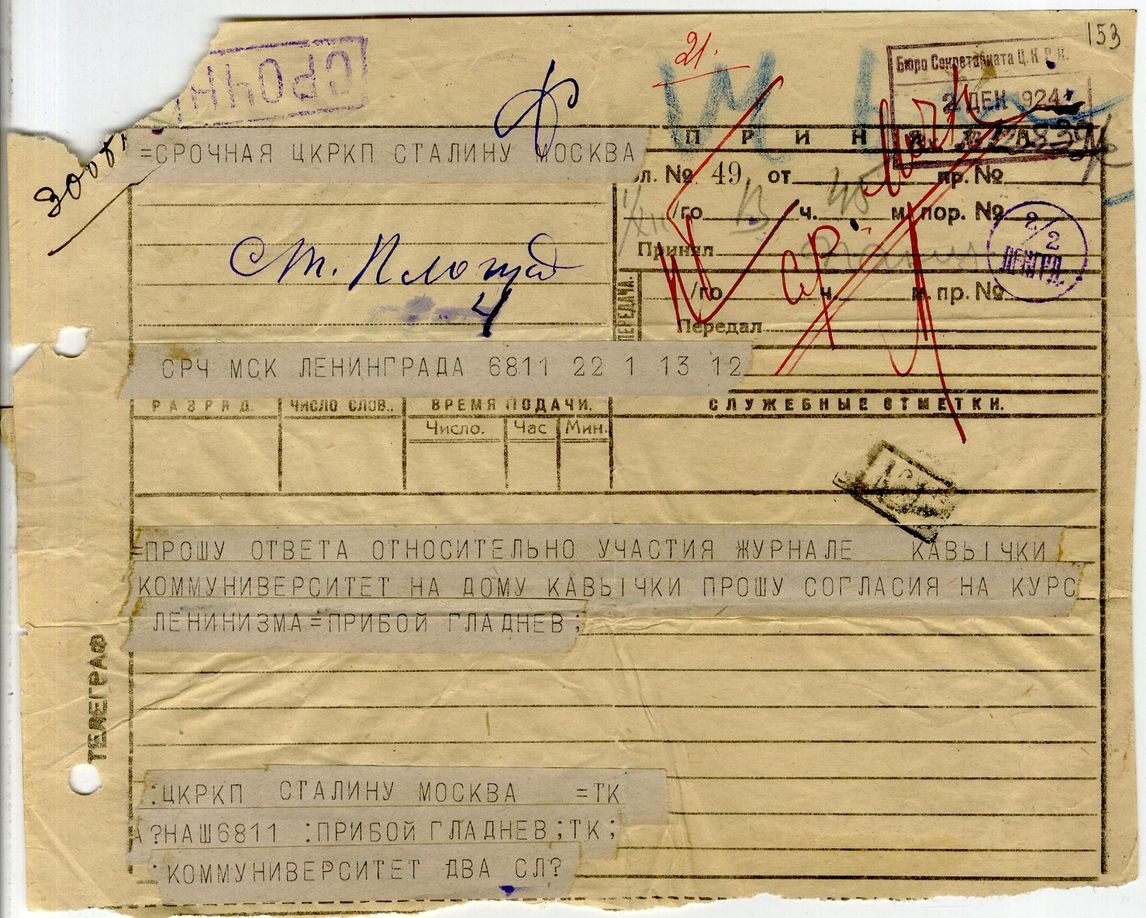 153
21.
СРОЧН
Бюро Секретариата Ц.К.Р.К.
2 ДЕК 1924
ПРИНЯТА
=СРОЧНАЯ ЦКРКП СТАЛИНУ МОСКВА
эл. № 49 от пр. №
/го ч. м. пор. №
Принял
2/2
Ст. Площад
4
ср.
/го ч. м. пр. №
ПЕРЕДАЧА.
Передал
СРЧ МСК ЛЕНИНГРАДА 6811 22 1 13 12
РАЗРЯД. ЧИСЛО СЛОВ. ВРЕМЯ ПОДАЧИ. СЛУЖЕБНЫЕ ОТМЕТКИ.
Число. Час Мин.
=ПРОШУ ОТВЕТА ОТНОСИТЕЛЬНО УЧАСТИЯ ЖУРНАЛЕ КАВЫЧКИ
КОММУНИВЕРСИТЕТ НА ДОМУ КАВЫЧКИ ПРОШУ СОГЛАСИЯ НА КУРС
ЛЕНИНИЗМА=ПРИБОЙ ГЛАДНЕВ;
ТЕЛЕГРАФ
:ЦКРКП СТАЛИНУ МОСКВА =ТК
А?НАШ6811 :ПРИБОЙ ГЛАДНЕВ;ТК;
:КОММУНИВЕРСИТЕТ ДВА СЛ?